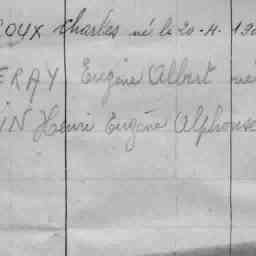 OUX Charles né le 20-4-190
ERAY Eugène Albert né
IN Henri Eugène Alphonse